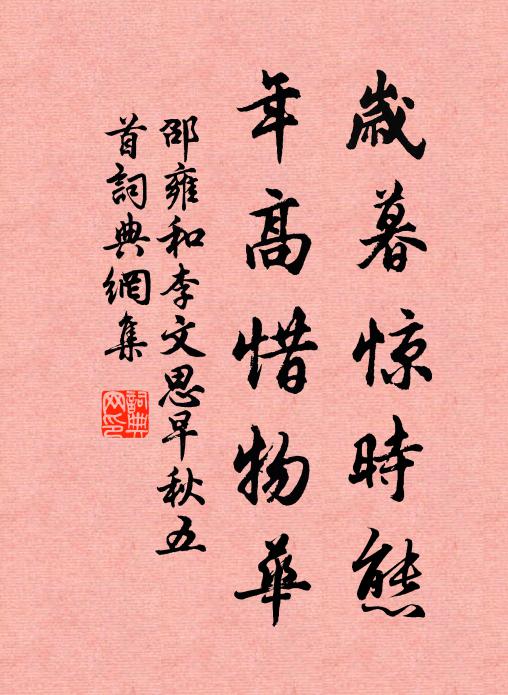 歲暮惊時態
年高惜物華
邵雍和李文思早秋五
首詞典網集
詞典
网印